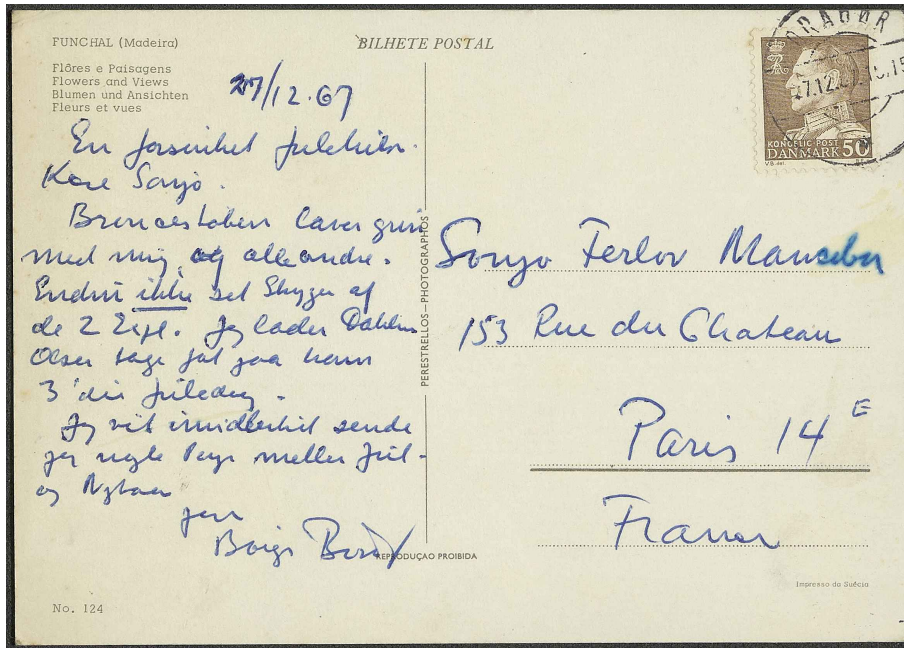 FUNCHAL (Madeira)
Flôres e Paisagens
Flowers and Views
Blumen und Ansichten
Fleurs et vues
BILHETE POSTAL
27/12.67
En forsinket Julehilsen.
Kære Sonja.
Broncestøberen laver grin
med mig og alle andre.
Endnu ikke set Skygge af
de 2 Expl. Jeg lader Dahlmann
Olsen tage fat paa ham
3'die Juledag.
Jeg vil imidlertid sende
jer nogle Penge mellem Jul-
og Nytaar
jer
Børge
PERESTRELLOS—PHOTOGRAPHOS
REPRODUÇAO PROIBIDA
No. 124
DRAGØR
KONGELIG POST
DANMARK 50
Sonja Ferlov Mancoba
153 Rue du Chateau
Paris 14 E
France
Impresso da Suécia